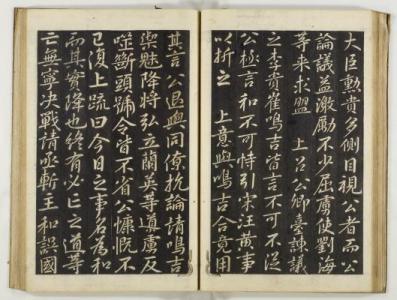 大臣勲貴多側目視公者而公
論議益激勵不少屈虜使劉海
等来求盟 上召公卿臺諫議
之李貴崔鳴吉皆言不可不從
公極言和不可恃引宋汪黄事
以折之 上意與鳴吉合竟用
其言公退與同僚抗論請鳴吉
禦魅降將弘立蘭英等導虜反
噬斷頭蹄令皆不省公慷慨不
已復上疏曰今日之事名為和
而其實降也終有必亡之道等
亡無寧决戰請亟斬王和誤國